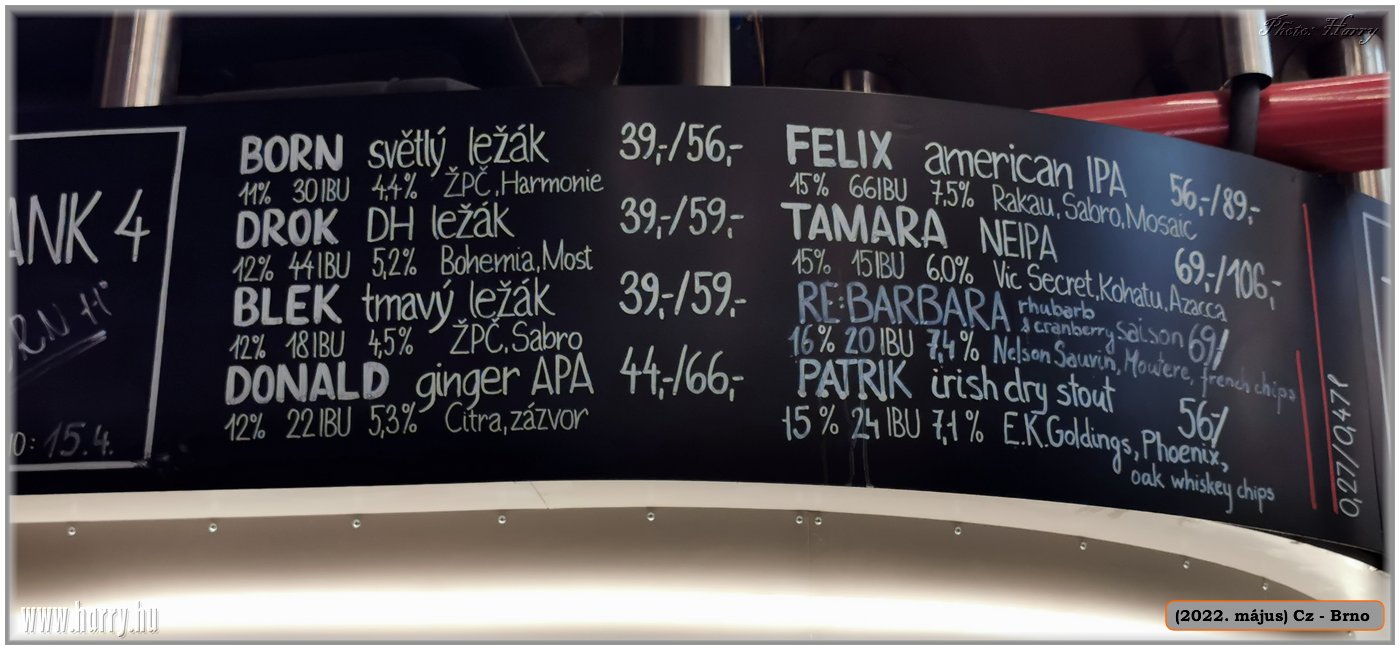 Photo: Harry
ANK 4
BORN 11°
15.4.
BORN světlý ležák 39,-/56,-
11% 30 IBU 4,4% ŽPČ, Harmonie
DROK DH ležák 39,-/59,-
12% 44 IBU 5,2% Bohemia, Most
BLEK tmavý ležák 39,-/59,-
12% 18 IBU 4,5% ŽPČ, Sabro
DONALD ginger APA 44,-/66,-
12% 22 IBU 5,3% Citra, zázvor
FELIX american IPA 56,-/89,-
15% 66 IBU 7,5% Rakau, Sabro, Mosaic
TAMARA NEIPA 69,-/106,-
15% 15 IBU 6,0% Vic Secret, Kohatu, Azacca
RE:BARBARA rhubarb & cranberry saison 69/
16% 20 IBU 7,4% Nelson Sauvin, Moutere, french chips
PATRIK irish dry stout 56,-/
15% 24 IBU 7,1% E.K.Goldings, Phoenix,
oak whiskey chips
0,27/0,47 l
www.harry.hu
(2022. május) Cz - Brno